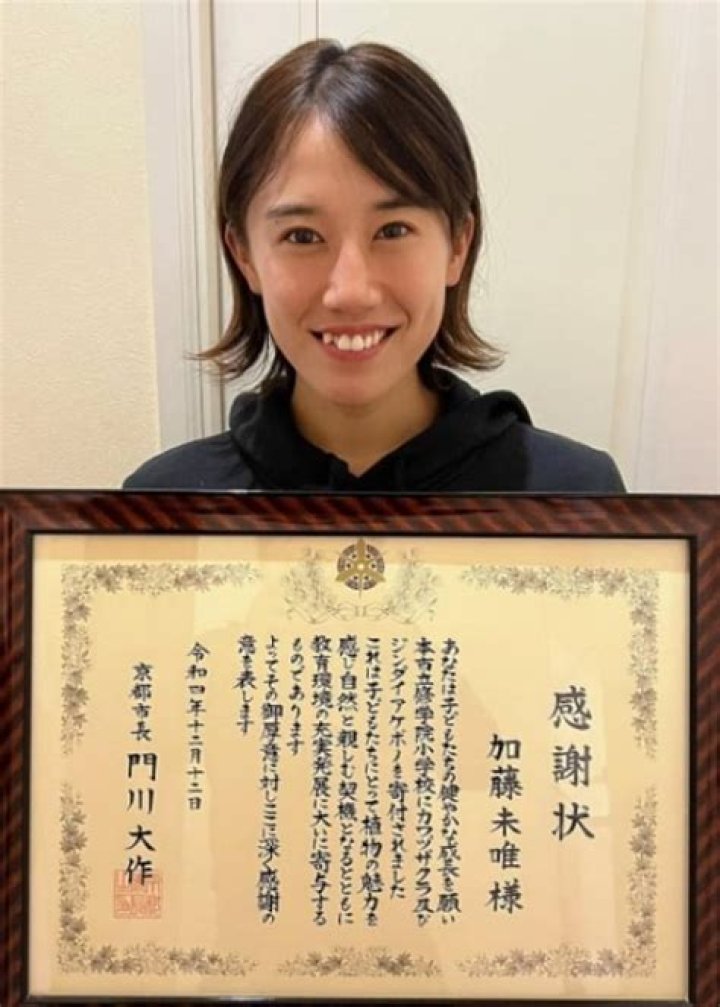 感謝状
加藤未唯様
あなたは子どもたちの健やかな成長を願い
本市立修学院小学校にカワヅザクラ及び
ジンダイアケボノを寄付されました
これは子どもたちにとって植物の魅力を
感じ自然と親しむ契機となるとともに
教育環境の充実発展に大いに寄与する
ものであります
よってその御厚意に対しここに深く感謝の
意を表します
令和四年十二月十二日
京都市長 門川大作